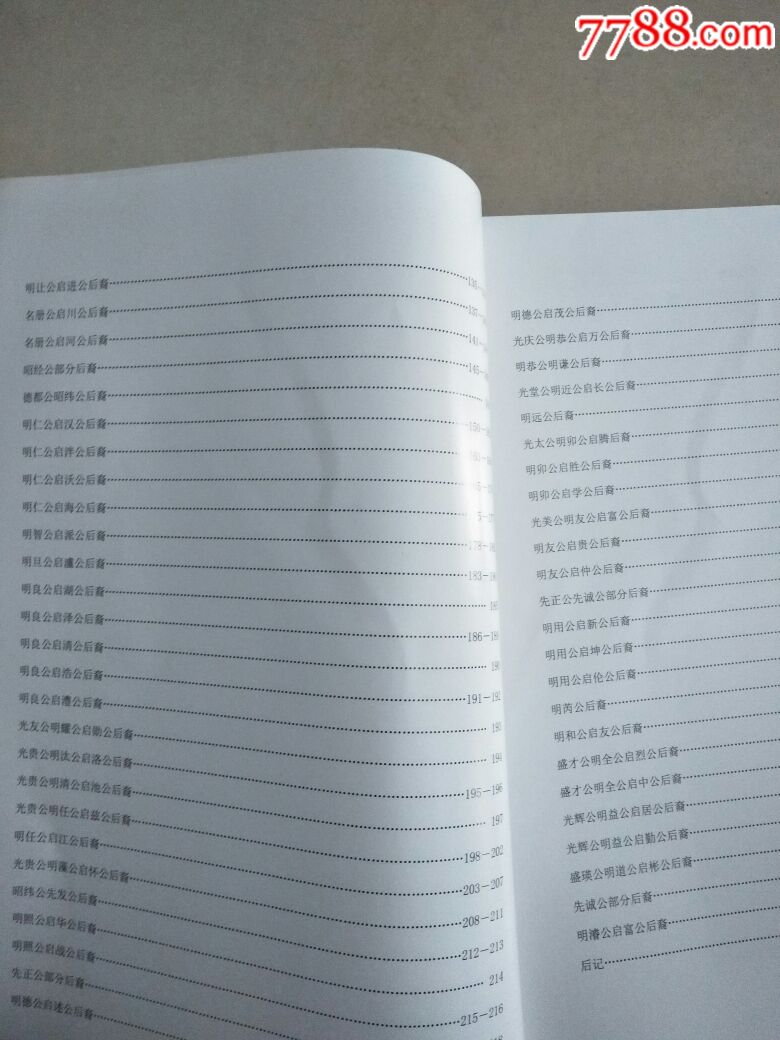 7788.com
明让公启进公后裔
名册公启川公后裔
名册公启河公后裔
昭经公部分后裔
德都公昭纬公后裔
明仁公启汉公后裔
明仁公启泮公后裔
明仁公启沃公后裔
明仁公启海公后裔
明智公启派公后裔
明旦公启公后裔 183-
明良公启湖公后裔
明良公启泽公后裔 186-189
明良公启清公后裔 190
明良公启浩公后裔 191-192
明良公启澧公后裔 193
光友公明耀公启勋公后裔 194
光贵公明汰公启洛公后裔 195-196
光贵公明清公启池公后裔 197
光贵公明任公启兹公后裔 198-202
明任公启江公后裔 203-207
光贵公明公启怀公后裔 208-211
昭纬公先发公后裔 212-213
明照公启华公后裔 214
明照公启战公后裔 215-216
先正公部分后裔
明德公启述公后裔
明德公启茂公后裔
光庆公明恭公启万公后裔
明恭公明谦公后裔
光堂公明近公启长公后裔
明远公后裔
光太公明卯公启腾后裔
明卯公启胜公后裔
明卯公启学公后裔
光美公明友公启富公后裔
明友公启贵公后裔
明友公启仲公后裔
先正公先诚公部分后裔
明用公启新公后裔
明用公启坤公后裔
明用公启伦公后裔
明芮公后裔
明和公启友公后裔
盛才公明全公启烈公后裔
盛才公明全公启中公后裔
光辉公明益公启居公后裔
光辉公明益公启勤公后裔
盛瑛公明道公启彬公后裔
先诚公部分后裔
明濬公启富公后裔
后记